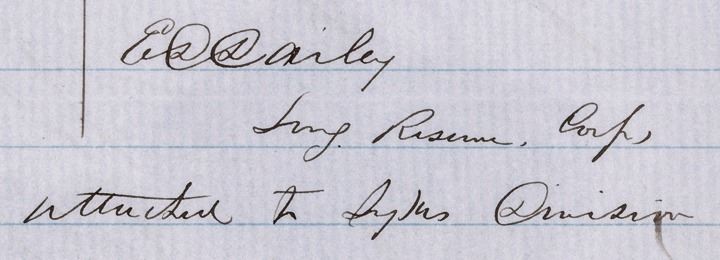 E D Dailey
Surg. Reserve. Corps,
attached to Sykes Division